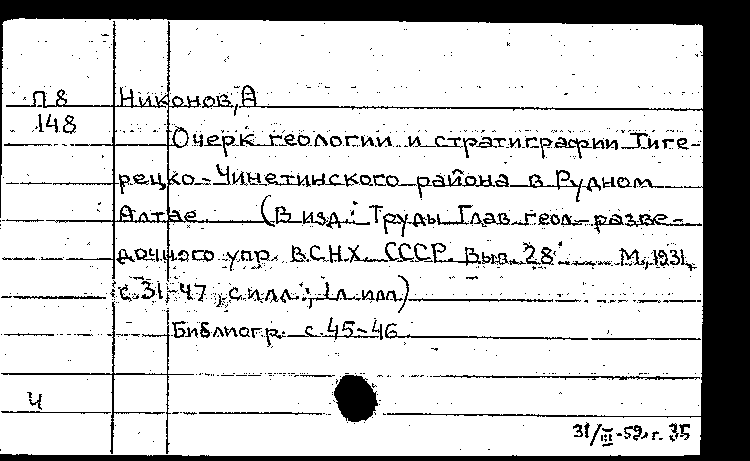 П 8 Никонов, А
148
Очерк геологии и стратиграфии Тиге-
рецко-Чинетинского района в Рудном
Алтае (В изд.: Труды Глав. геол.-разве-
дочного упр. ВСНХ. СССР. Вып. 28. М., 1931,
с. 31-47, с илл.; 1 л. илл)
Библиогр. с. 45-46.
Ч
31/III-59. г. 35